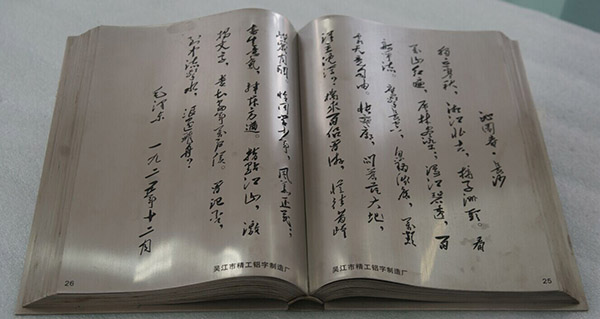 沁园春·长沙
独立寒秋,湘江北去,橘子洲头。看
万山红遍,层林尽染;漫江碧透,百
舸争流。鹰击长空,鱼翔浅底,万类
霜天竞自由。怅寥廓,问苍茫大地,
谁主沉浮?携来百侣曾游,忆往昔峥
吴江市精工铝字制造厂
25
嵘岁月稠。恰同学少年,风华正茂;
书生意气,挥斥方遒。指点江山,激
扬文字,粪土当年万户侯。曾记否,
到中流击水,浪遏飞舟?
毛泽东
一九二五年十二月
吴江市精工铝字制造厂
26